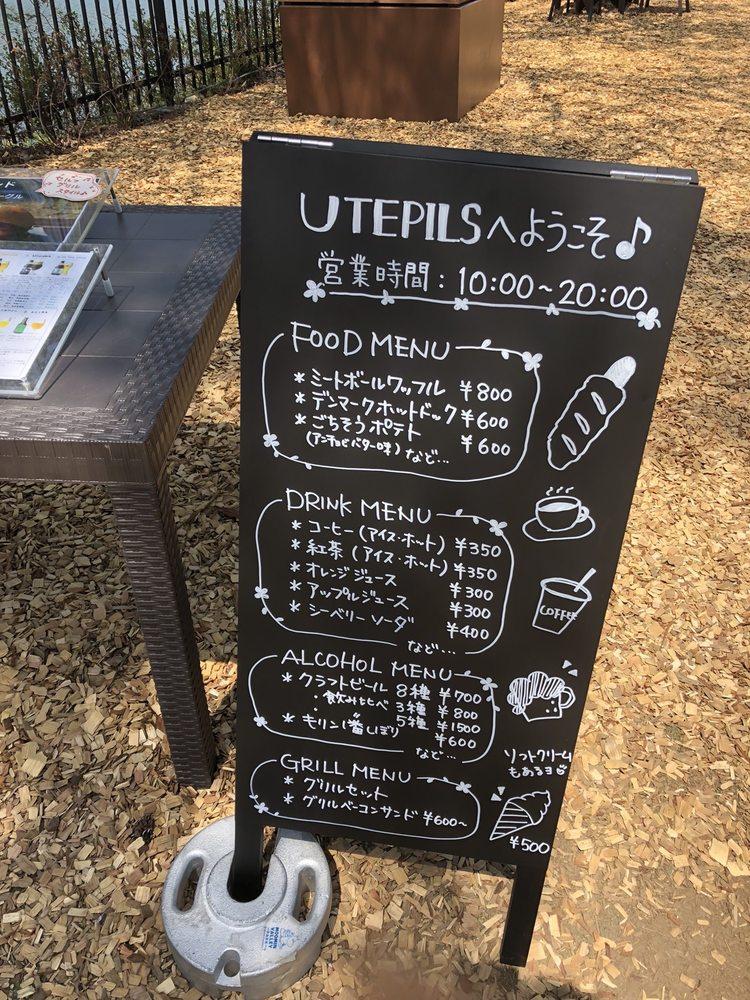 UTEPILSへようこそ♪
営業時間:10:00~20:00
FOOD MENU
*ミートボールワッフル ¥800
*デンマークホットドック ¥600
*ごちそうポテト ¥600
(アンチョビバター味) など...
DRINK MENU
*コーヒー(アイス・ホット) ¥350
*紅茶(アイス・ホット) ¥350
*オレンジジュース ¥300
*アップルジュース ¥300
*シーベリーソーダ ¥400
など...
COFFEE
ALCOHOL MENU
*クラフトビール 8種 ¥700
・飲み比べ 3種 ¥800
・ 〃 5種 ¥1500
*キリン一番しぼり ¥600
など...
ソフトクリーム
もあるヨ
¥500
GRILL MENU
*グリルセット
*グリルベーコンサンド ¥600~
グリル
スタイル
MOOMIN
VALLEY